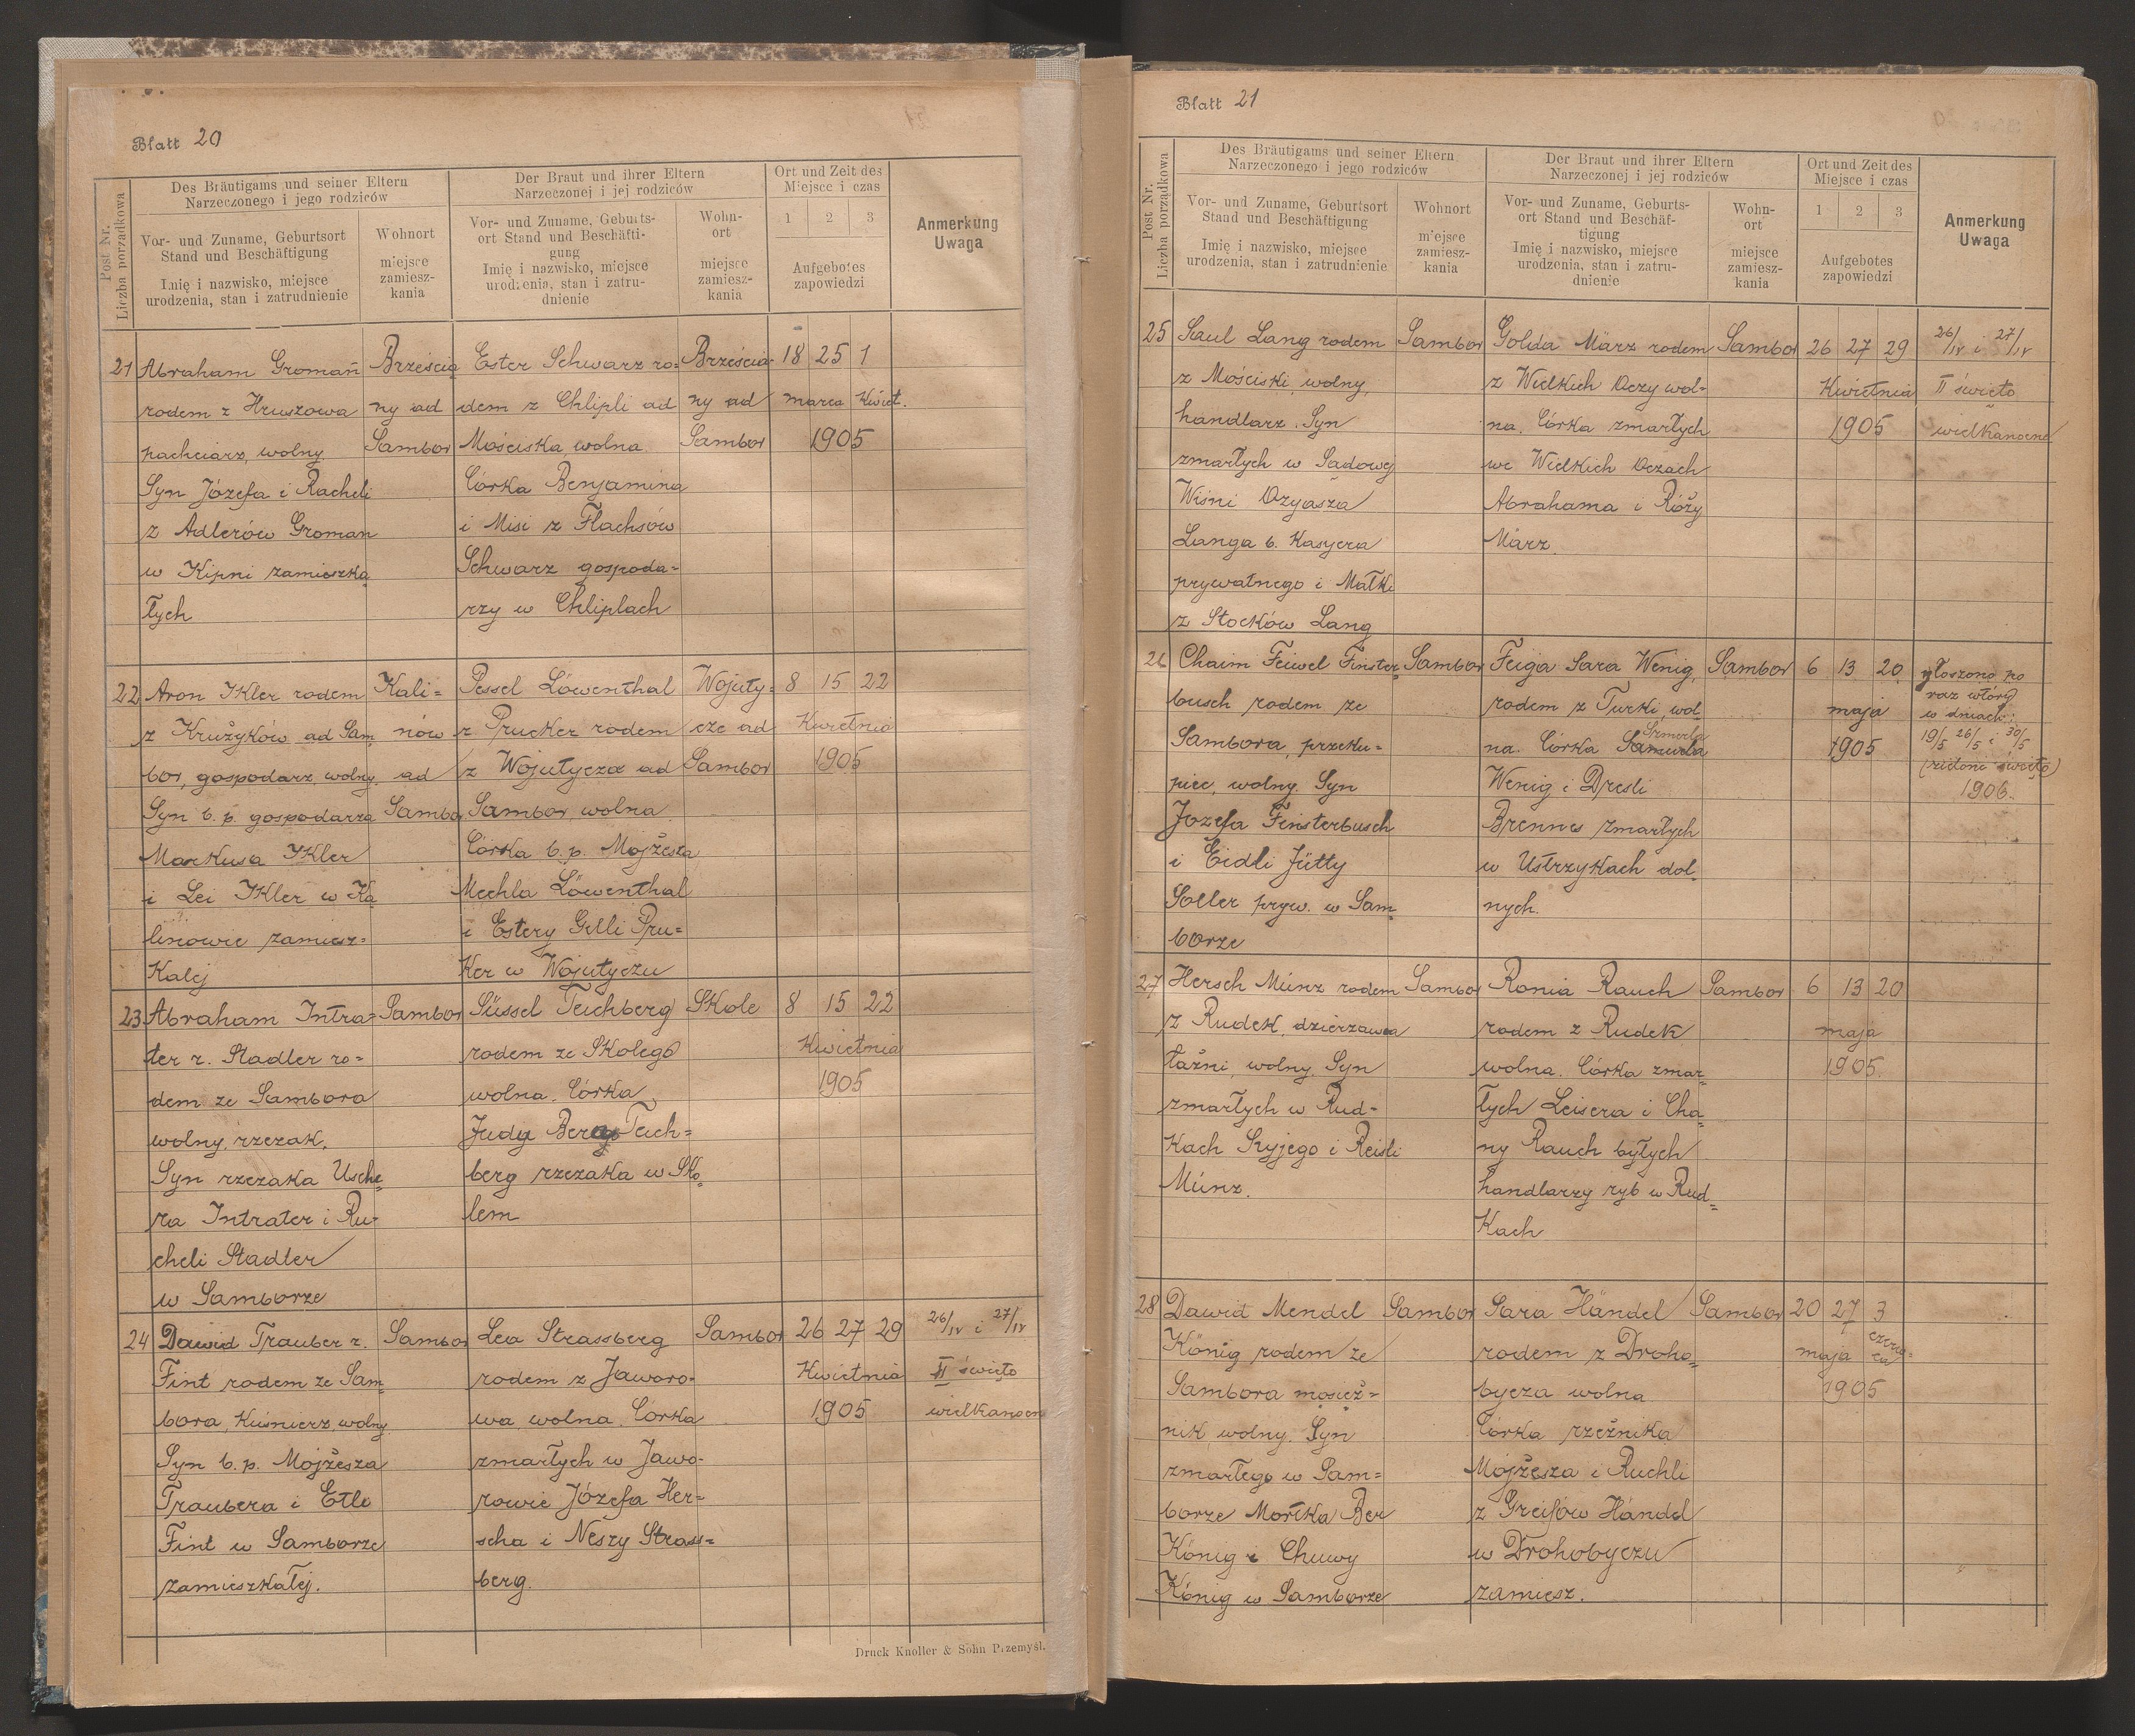 Blatt 20
Post Nr.
Liczba porządkowa
Des Bräutigams und seiner Eltern
Narzeczonego i jego rodziców
Der Braut und ihrer Eltern
Narzeczonej i jej rodziców
Ort und Zeit des
Miejsce i czas
Anmerkung
Uwaga
Vor- und Zuname, Geburtsort
Stand und Beschäftigung
Imię i nazwisko, miejsce
urodzenia, stan i zatrudnienie
Wohnort
miejsce
zamiesz-
kania
Vor- und Zuname, Geburts-
ort Stand und Beschäfti-
gung
Imię i nazwisko, miejsce
urodzenia, stan i zatru-
dnienie
Wohn-
ort
miejsce
zamiesz-
kania
1 2 3
Aufgebotes
zapowiedzi
21
Abraham Groman
rodem z Hruszowa
pachciarz, wolny
Syn Józefa i Racheli
z Adlerów Groman
w Kipni zamieszka
łych
Brześcia
ny ad
Sambor
Ester Schwarz ro=
dem z Chlipli ad
Mościska, wolna
Córka Benjamina
i Misi z Flachsów
Schwarz gospoda=
rzy w Chliplach
Brześcia-
ny ad
Sambor
18 25 1
marca Kwiet.
1905
22
Aron Ikler rodem
z Krużyków ad Sam
bor, gospodarz, wolny
Syn b. p. gospodarza
Markusa Ikler
i Lei Ikler w Ka
linowie zamiesz=
kalej
Kali=
nów
ad
Sambor
Pessel Löwenthal
z Prucker rodem
z Wojutycza ad
Sambor, wolna
Córka b. p. Mojżesza
Mechla Löwenthal
i Estery Gelli Pru=
ker w Wojutyczu
Wojuty=
cze ad
Sambor
8 15 22
Kwietnia
1905
23
Abraham Intra=
ter r. Stadler ro=
dem ze Sambora
wolny, rzezak,
Syn rzezaka Usche
ra Intrater i Ru-
cheli Stadler
w Samborze
Sambor
Süssel Teichberg
rodem ze Skolego
wolna. Córka
Judy Berg Teich=
berg rzezaka w Sko
lem
Skole
8 15 22
Kwietnia
1905
24
Dawid Trauber r.
Fint rodem ze Sam
bora, Kuśnierz, wolny
Syn b. p. Mojżesza
Traubera i Etle
Fint w Samborze
zamieszkałej.
Sambor
Lea Strassberg
rodem z Jaworo-
wa, wolna. Córka
zmarłych w Jawo-
rowie Józefa Her=
scha i Neszy Strass=
berg.
Sambor
26 27 29
Kwietnia
1905
26/IV i 27/IV
II święto
wielkanocn
Druck Knoller & Sohn Przemyśl.
Blatt 21
Post Nr.
Liczba porządkowa
Des Bräutigams und seiner Eltern
Narzeczonego i jego rodziców
Der Braut und ihrer Eltern
Narzeczonej i jej rodziców
Ort und Zeit des
Miejsce i czas
Anmerkung
Uwaga
Vor- und Zuname, Geburtsort
Stand und Beschäftigung
Imię i nazwisko, miejsce
urodzenia, stan i zatrudnienie
Wohnort
miejsce
zamiesz-
kania
Vor- und Zuname, Geburts-
ort Stand und Beschäf-
tigung
Imię i nazwisko, miejsce
urodzenia, stan i zatru-
dnienie
Wohn-
ort
miejsce
zamiesz-
kania
1 2 3
Aufgebotes
zapowiedzi
25
Saul Lang rodem
z Mościski, wolny,
handlarz. Syn
zmarłych w Sadowej
Wiśni Ozyasza
Langa b. Kasyera
prywatnego i Małki
z Stocków Lang
Sambor
Golda März rodem
z Wielkich Oczy wol-
na. Córka zmarłych
we Wielkich Oczach
Abrahama i Róży
März.
Sambor
26 27 29
Kwietnia
1905
26/IV i 27/IV
II święto
wielkanocne
26
Chaim Feiwel Finster
busch rodem ze
Sambora, przeku=
piec, wolny. Syn
Jozefa Feisterbusch
i Eidli Jütty
Soller pryw. w Sam
borze
Sambor
Feiga Sara Wenig,
rodem z Turki, wol
Szmerla
na. Córka Samuela
Wenig i Dresli
Brenner zmarłych
w Ustrzykach dol
nych.
Sambor
6 13 20
maja
1905
głoszono po
raz wtóry
w dniach:
19/5 26/5 i 30/5
(zielone święto)
1906.
27
Hersch Münz rodem
z Rudek, dzierzawca
łaźni, wolny. Syn
zmarłych w Rud-
kach Szyjego i Reisli
Münz.
Sambor
Ronia Rauch
rodem z Rudek
wolna. Córka zmar
łych Leisera i Cha
ny Rauch byłych
handlarzy ryb w Rud
kach
Sambor
6 13 20
maja
1905.
28
Dawid Mendel
König rodem ze
Sambora mosięż=
nik, wolny. Syn
zmarłego w Sam=
borze Mortka Ber
König i Chuwy
König w Samborze
Sambor
Sara Händel
rodem z Droho
bycza wolna
Córka rzeźnika
Mojżesza i Ruchli
z Greifów Händel
w Drohobyczu
zamiesz.
Sambor
20 27 3
maja czerw-
ca
1905